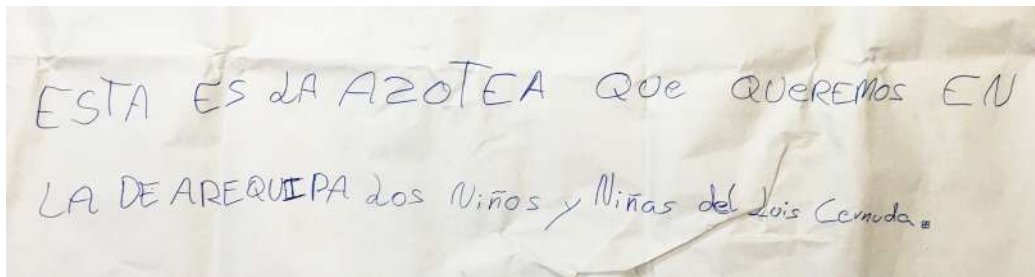 ESTA ES LA AZOTEA QUe QUeREMos EN
LA DE AREQUIPA Los Niños y Niñas del Luis Cernuda.